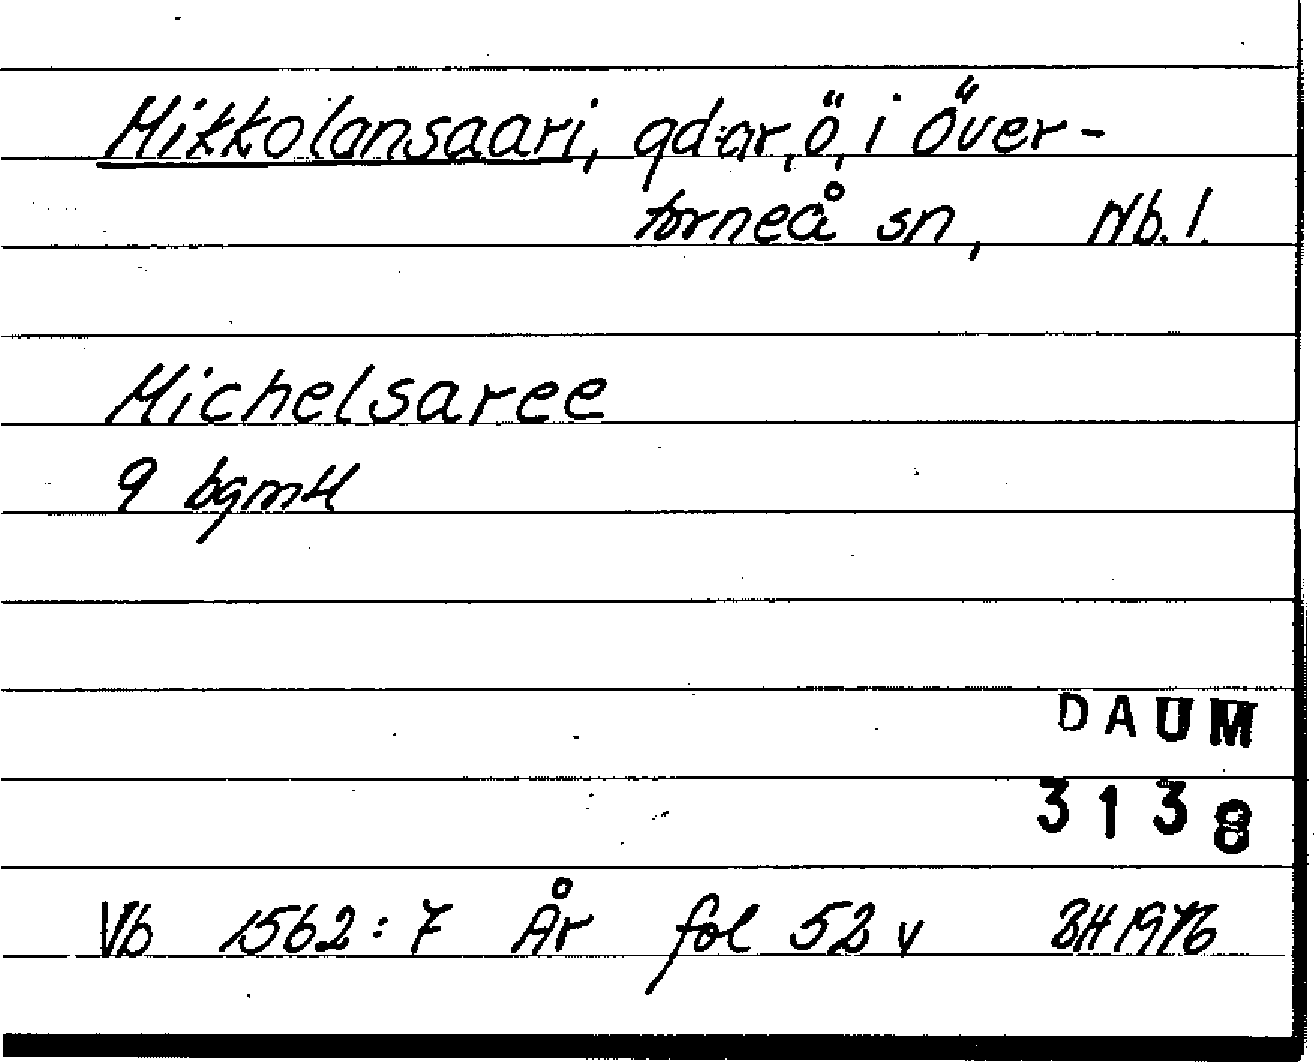 Mikkolansaari, gd:ar, ö, i Över-
torneå sn, Nb. l.
Michelsaree
9 bgmtl
DAUM
3138
Vb 1562:7 År fol 52 v BH 1976